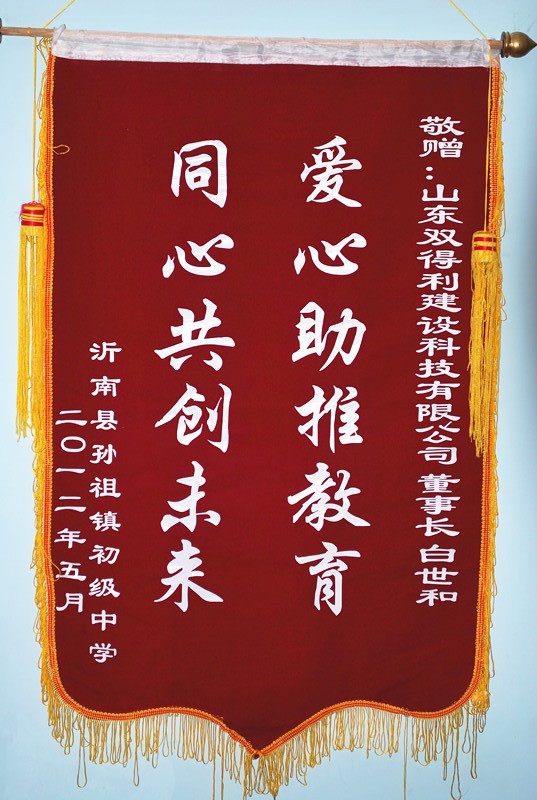 敬赠：山东双得利建设科技有限公司 董事长 白世和
爱心助推教育
同心共创未来
沂南县孙祖镇初级中学
二〇一二年五月